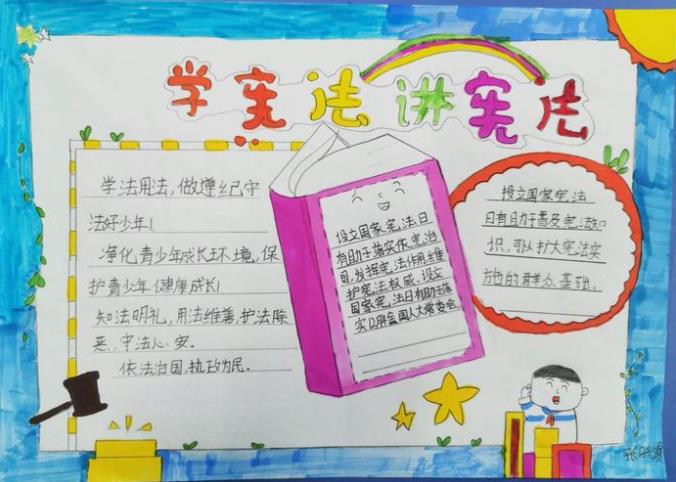 学宪法 讲宪法
学法用法，做遵纪守
法好少年！
净化青少年成长环境，保
护青少年健康成长！
知法明礼，用法维善，护法除
恶，守法心安。
依法治国，执政为民。
设立国家宪法日
有助于落实依宪治
国，发挥宪法作用，维
护宪法权威，设立
国家宪法日有助于落
实 全国人大常委会.
设立国家宪法
日有助于普及宪法知
识，可以扩大宪法实
施的群众基础。